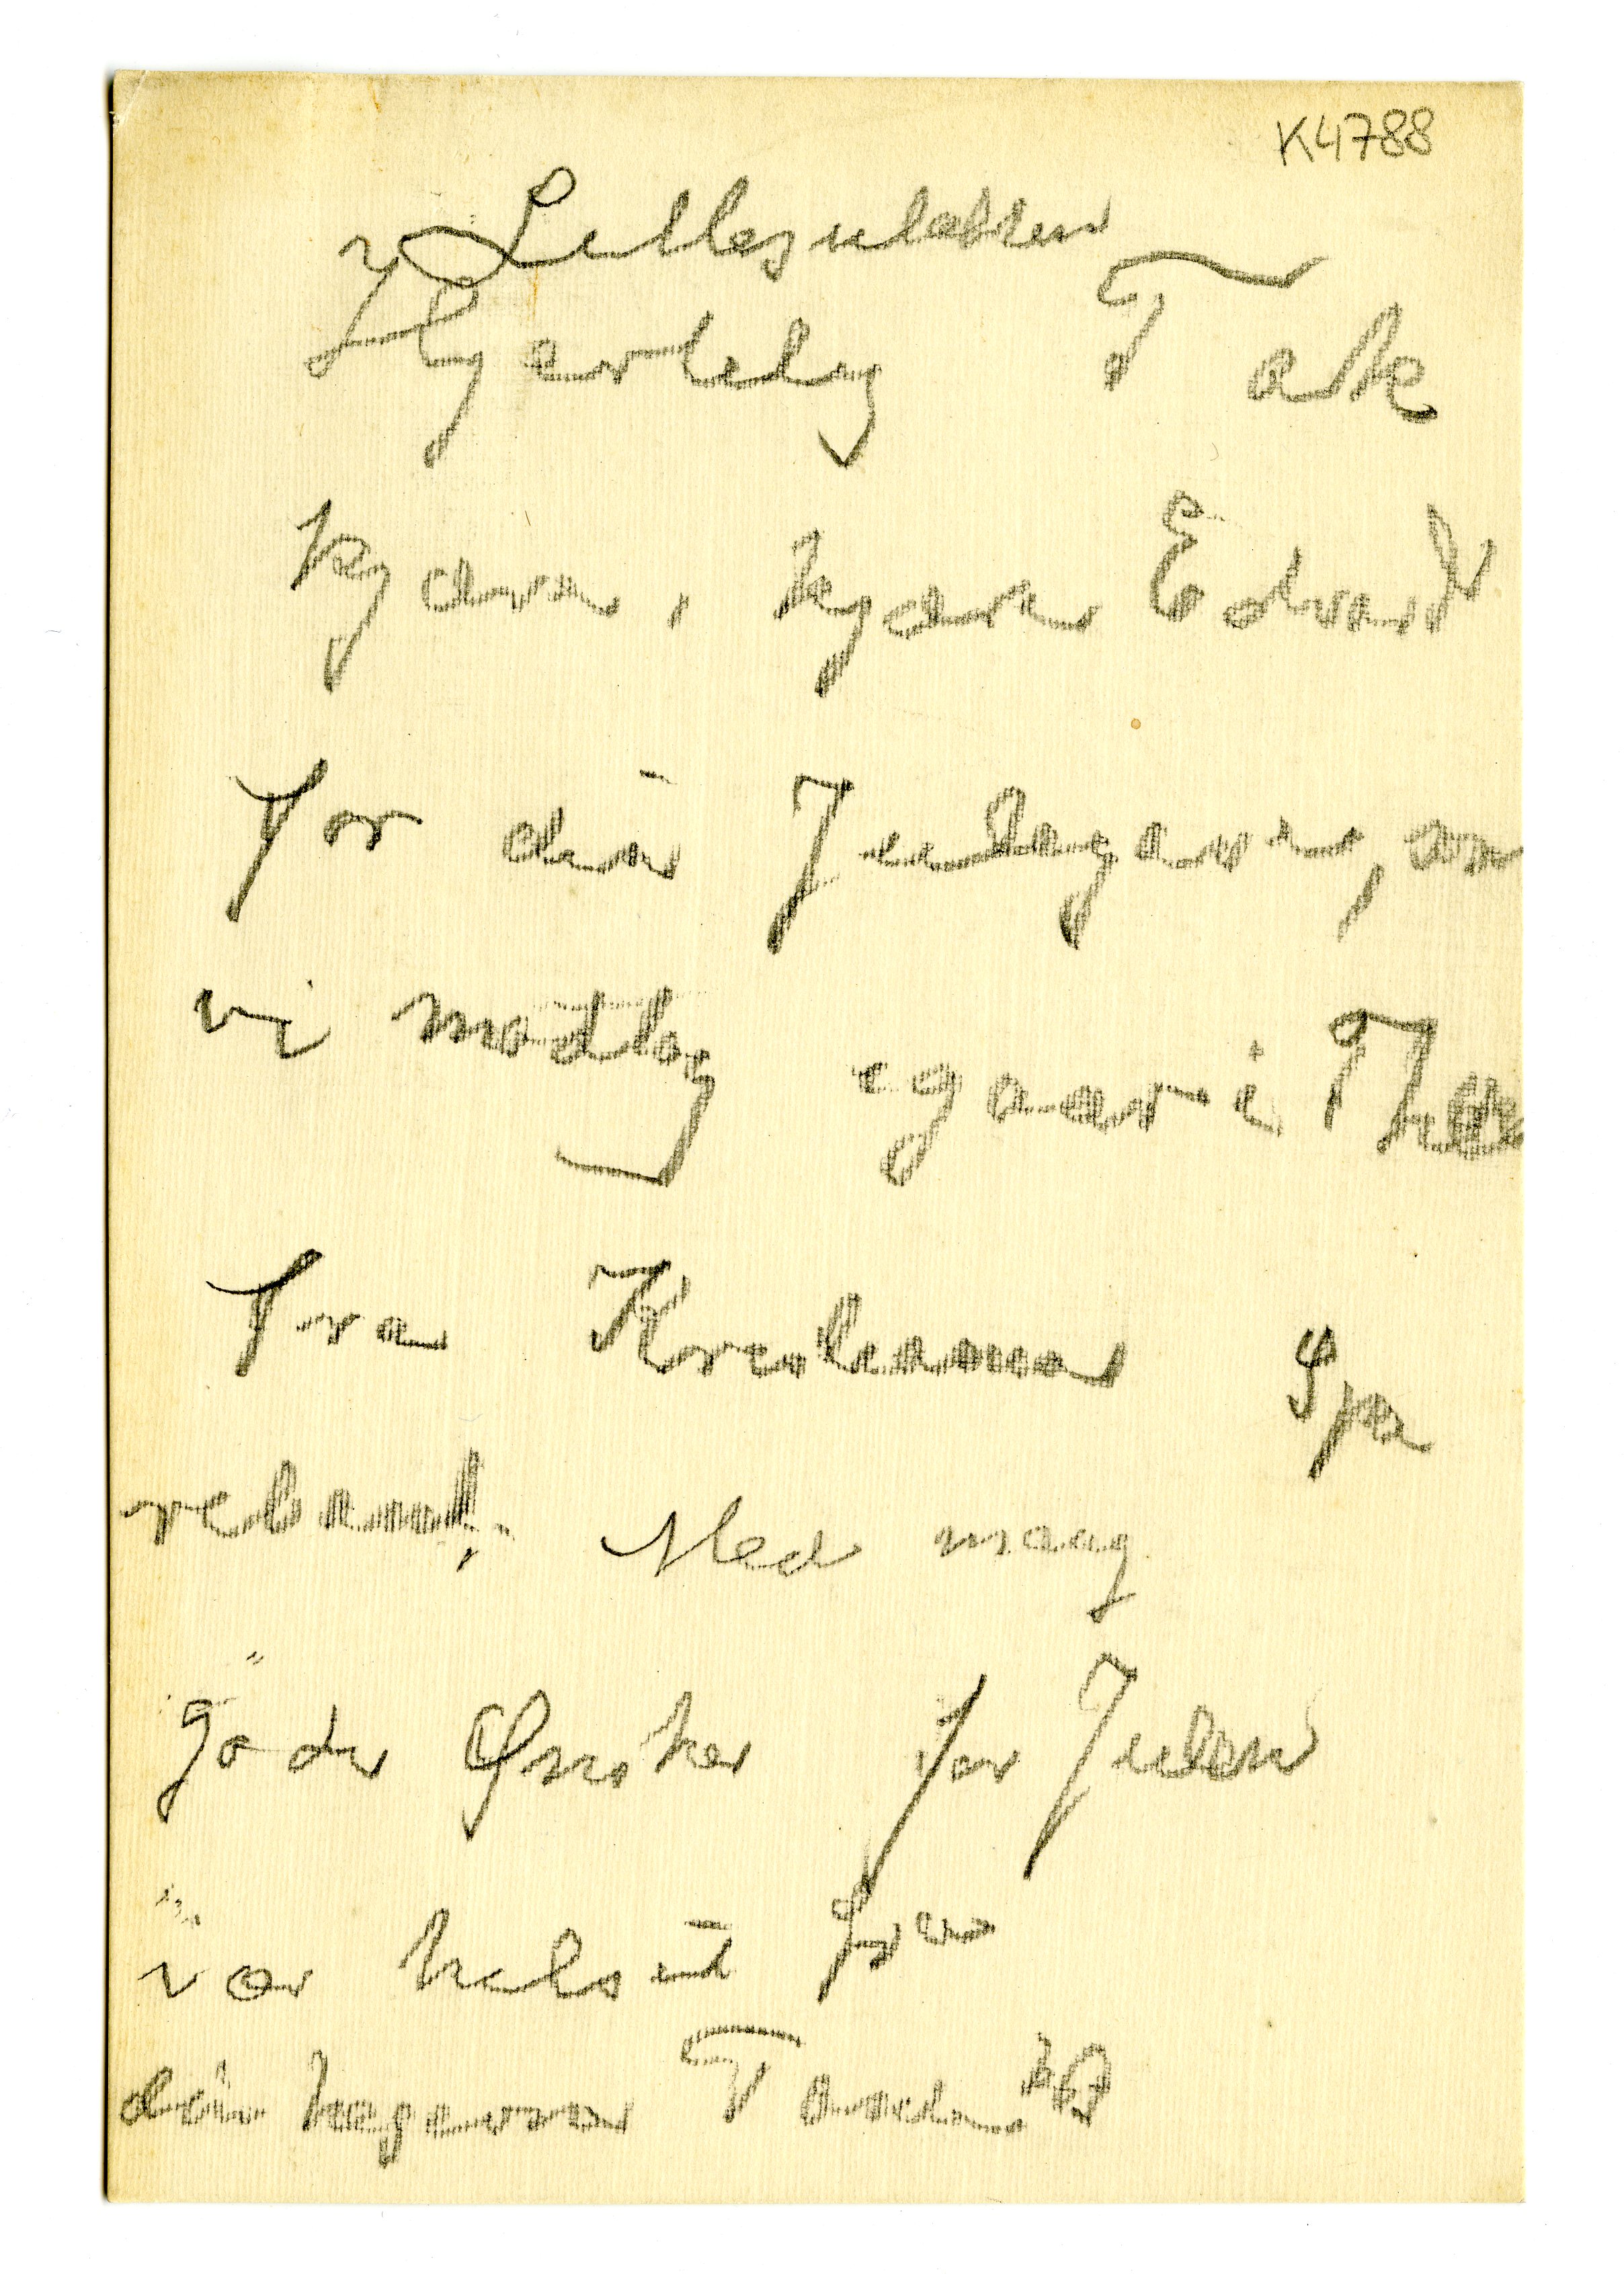 K4788
Lillejulaften
Hjertelig Tak
kjære, kjære Edvard
for din Julegave, som
vi modtog igaar i
fra Kristiania Spa
rebank, Med mang
gode Ønsker for Julen
vær hilset fra
din hengivne Tante